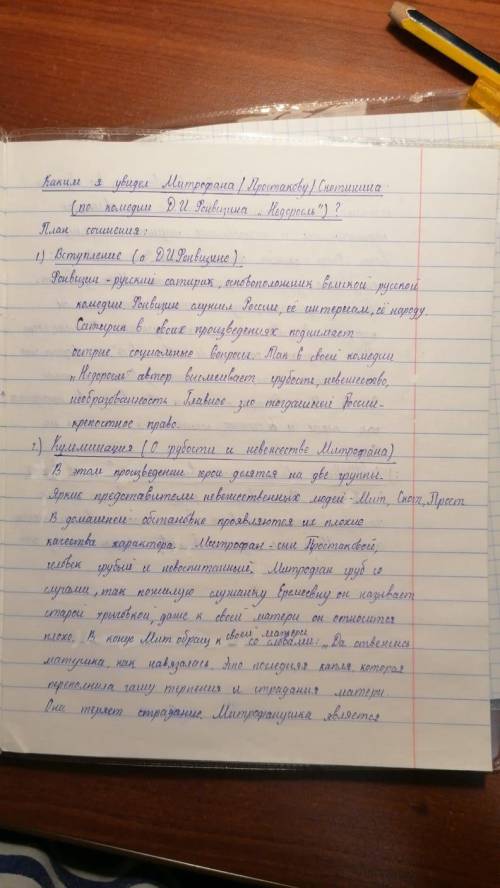 Каким я увидел Митрофана/Простакову/Скотинина
(по комедии Д И Фонвизина „Недоросль")?
План сочинения:
1) Вступление (о Д И Фонвизине):
Фонвизин - русский сатирик, основоположник великой русской
комедии Фонвизин служил России, её интересам, её народу.
Сатирик в своих произведениях поднимает
острые социальные вопросы. Так в своей комедии
„Недоросль" автор высмеивает грубость, невежество,
необразованность. Главное зло тогдашней России-
крепостное право.
2) Кульминация (О грубости и невежестве Митрофана)
В этом произведении герои делятся на две группы.
Яркие представители невежественных людей - Мит, Скот, Прост
В домашней обстановке проявляются их плохие
качества характера. Митрофан - сын Простаковой,
человек грубый и невоспитанный. Митрофан груб со
слугами, так пожилую служанку Еремеевну он называет
старой хрычовкой, даже к своей матери он относится
плохо. В конце Мит обращ к своей матери со словами: „Да отвяжись
матушка, как навязалась. Это последняя капля, которая
переполнила чашу терпения и страдания матери
Она теряет сознание. Митрофанушка является